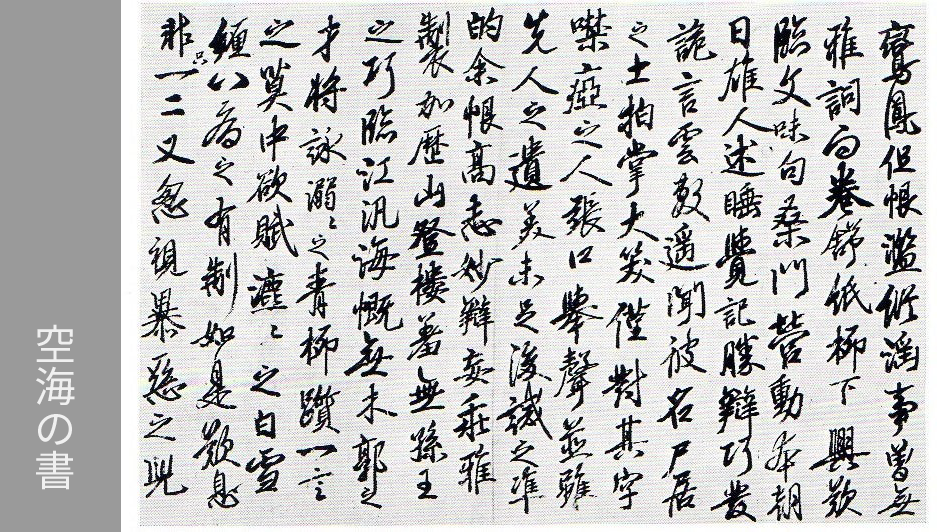 鸞鳳但恨濫縱淫事曾無
雅詞向卷舒紙柳下興歎
臨文味句桑門營動本朝
日雄人述睡覺記勝辯巧發
詭言雲敷遥聞彼名尸居
之士拍掌大笑僅對其字
噤瘂之人張口舉聲並雖
先人之遺美未足後誡之准
的余恨高志妙辯妄乖雅
製加歷山登樓羞無孫王
之巧臨江汎海慨無木郭之
才將詠溺〻之青柳躓一言
之莫中欲賦瀌〻之白雪
纏八病之有制如是歎息
非只一二又忽視暴惡之兒
空海の書